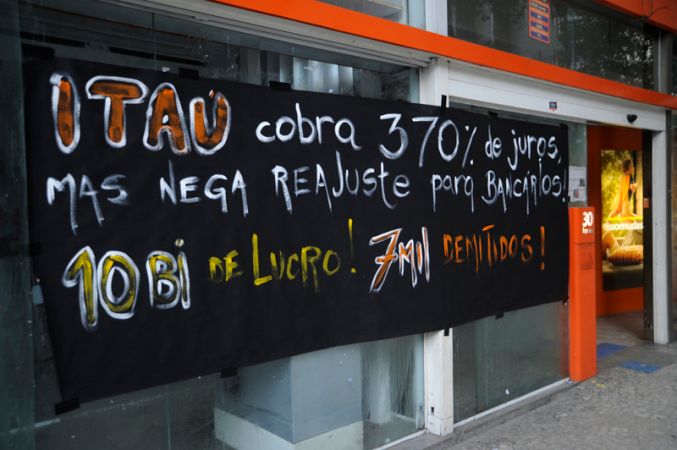 ITAÚ cobra 370% de juros,
MAS NEGA REAJUSTE para BANCÁRIOS!
10Bi DE LUCRO! 7Mil DEMITIDOS!
30